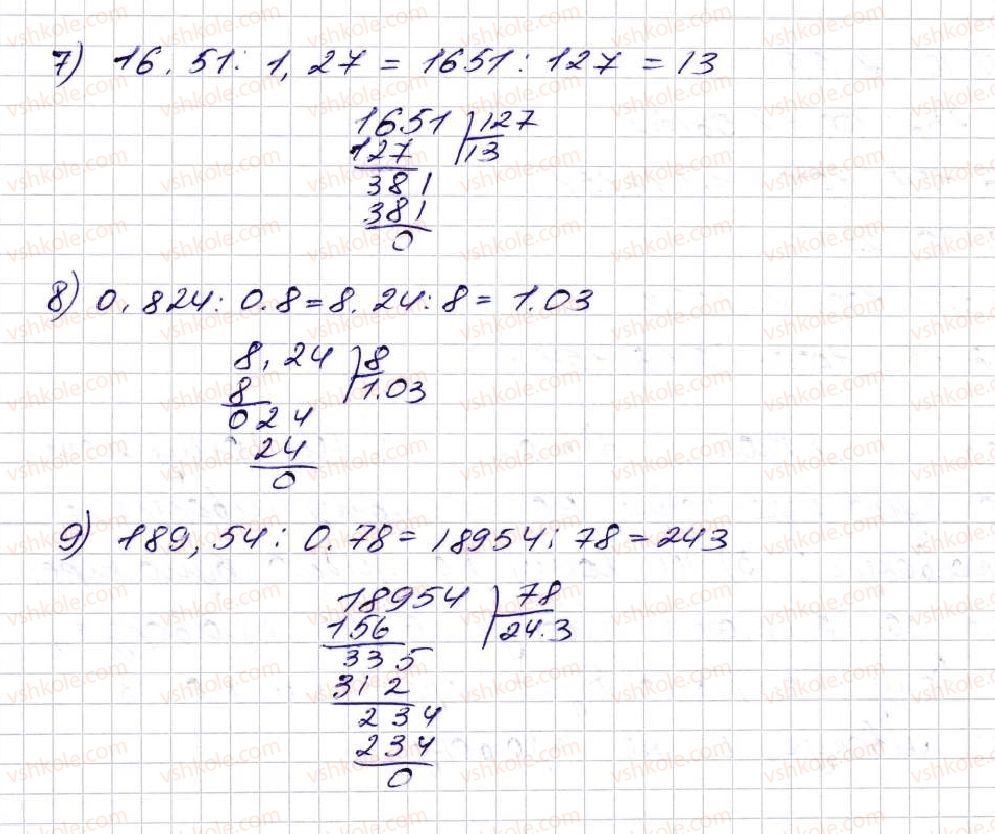 7) 16,51 : 1,27 = 1651 : 127 = 13
1651 | 127
127 | 13
381
381
0
8) 0,824 : 0.8 = 8.24 : 8 = 1.03
8,24 | 8
8 | 1.03
024
24
0
9) 189,54 : 0.78 = 18954 : 78 = 243
18954 | 78
156 | 24.3
335
312
234
234
0